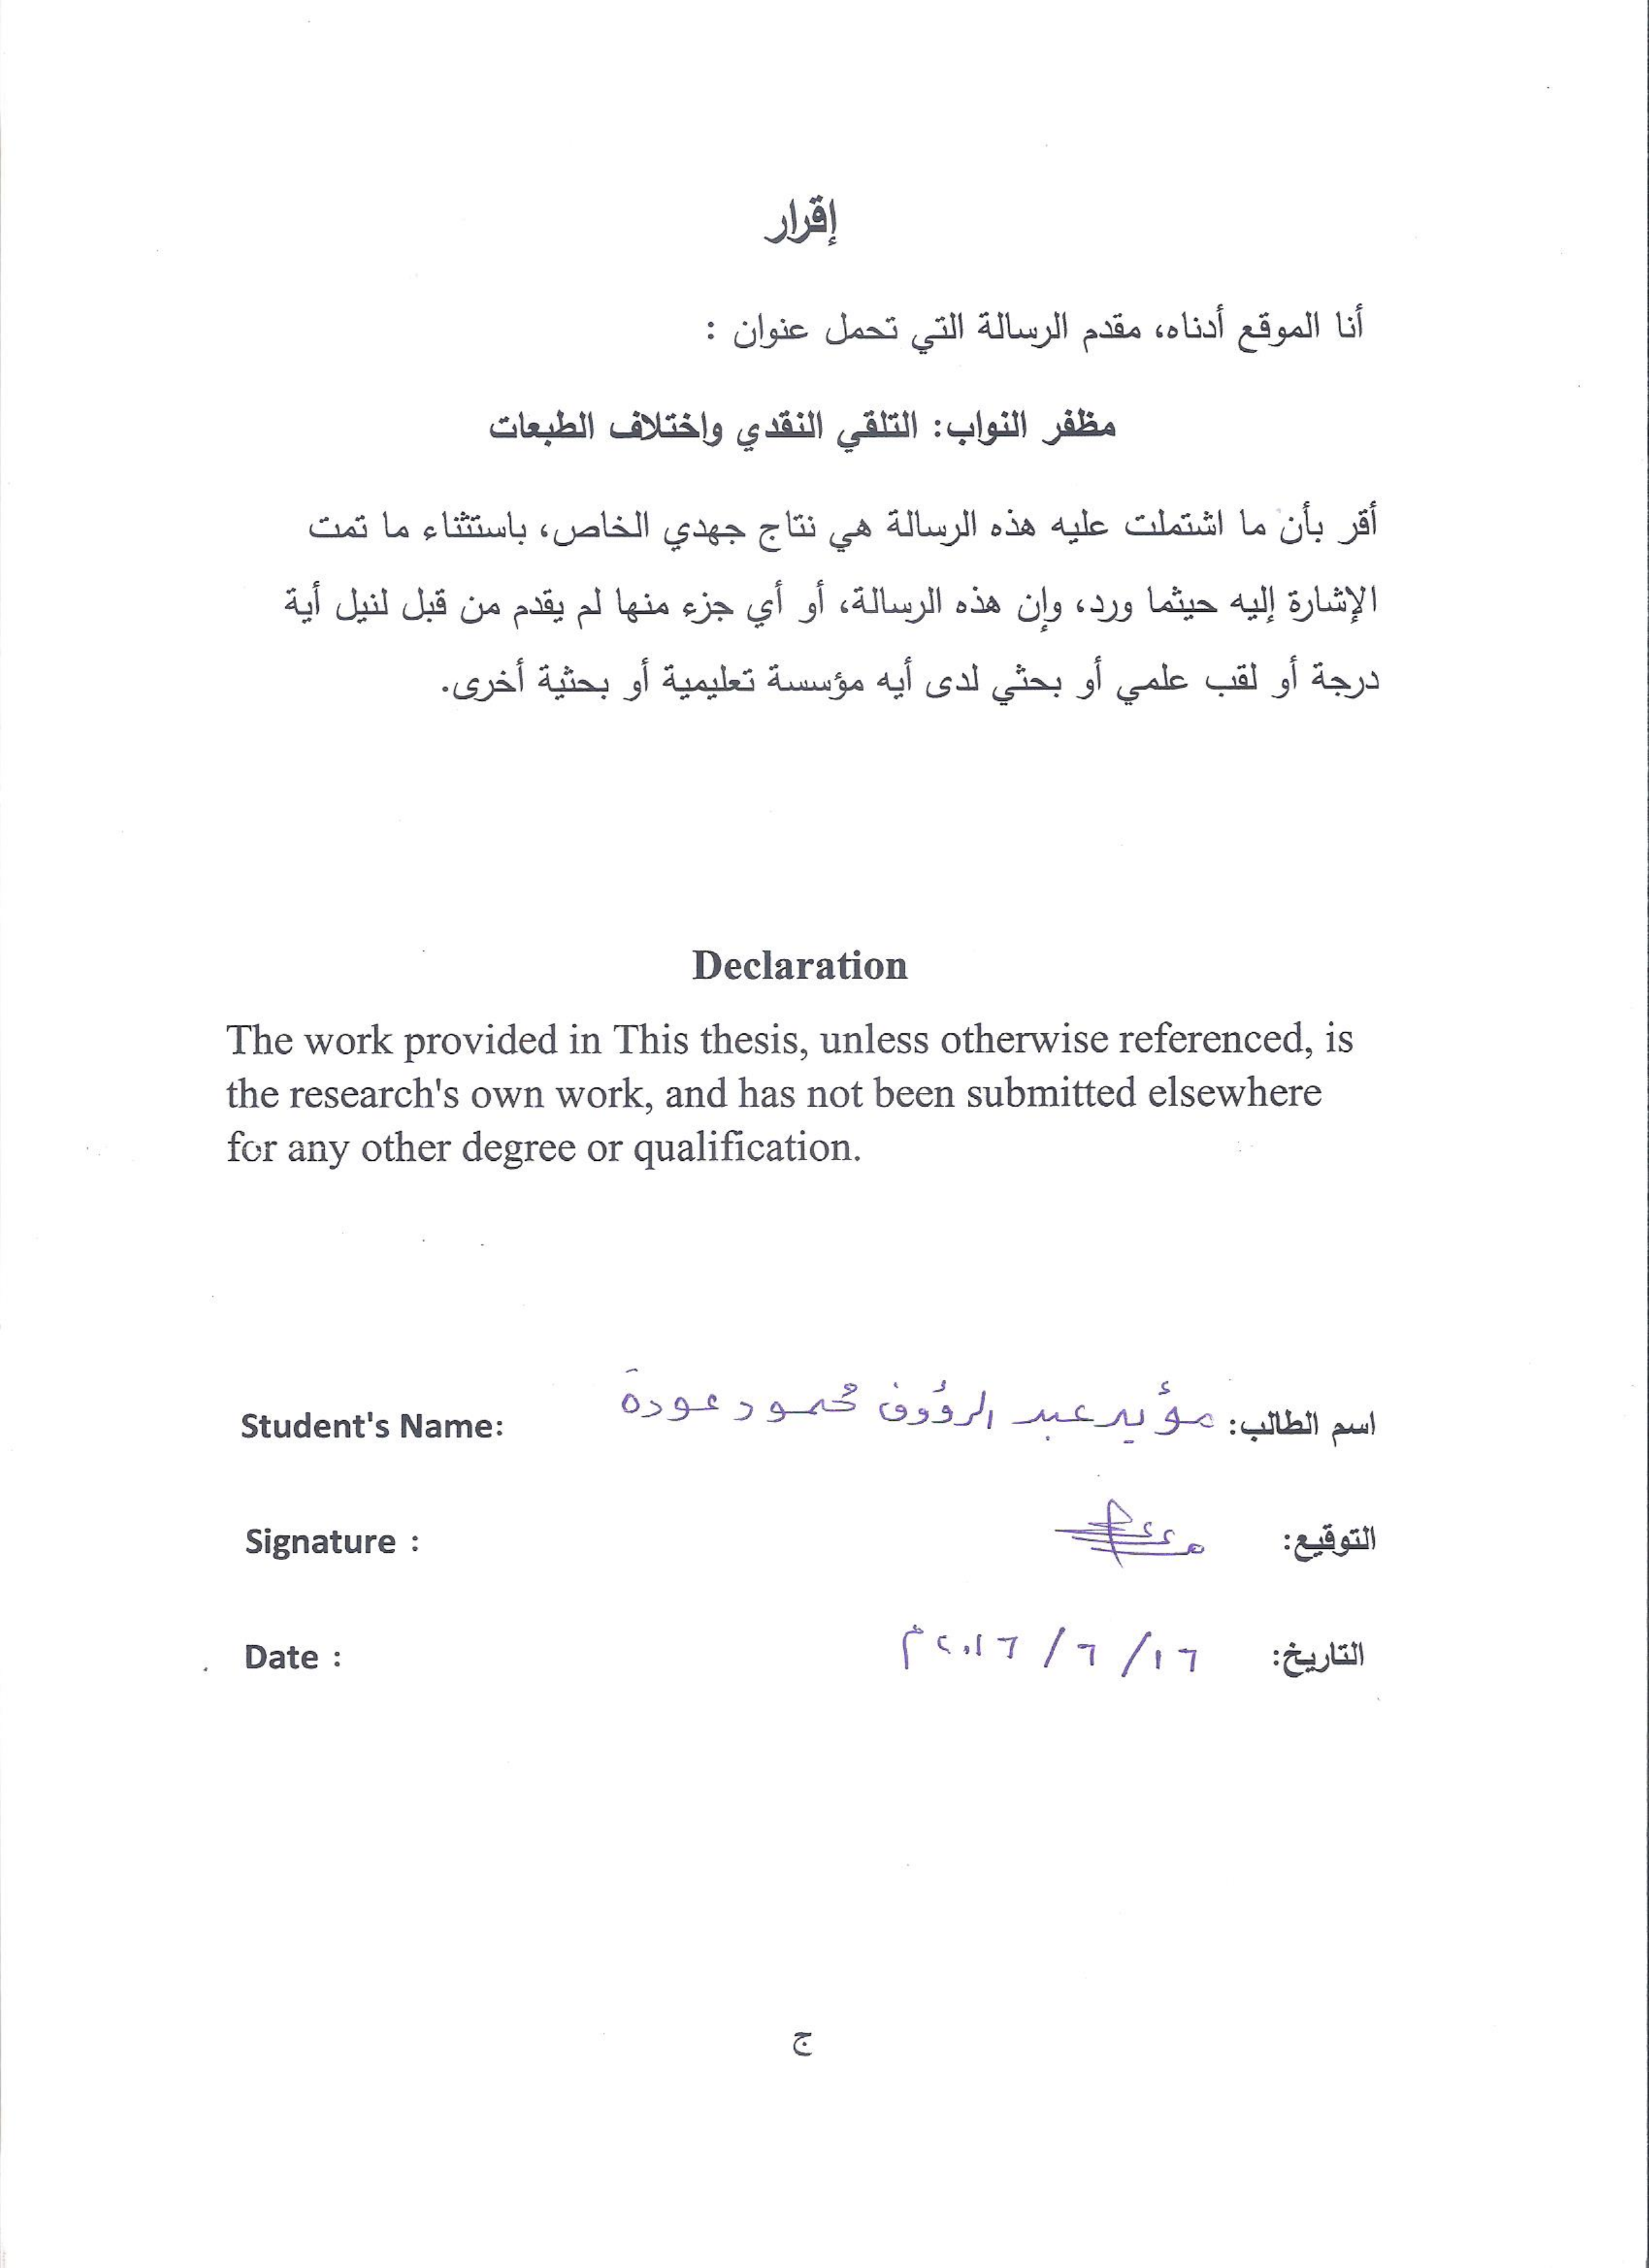 إقرار
أنا الموقع أدناه، مقدم الرسالة التي تحمل عنوان :
مظفر النواب: التلقي النقدي واختلاف الطبعات
أقر بأن ما اشتملت عليه هذه الرسالة هي نتاج جهدي الخاص، باستثناء ما تمت
الإشارة إليه حيثما ورد، وإن هذه الرسالة، أو أي جزء منها لم يقدم من قبل لنيل أية
درجة أو لقب علمي أو بحثي لدى أيه مؤسسة تعليمية أو بحثية أخرى.
Declaration
The work provided in This thesis, unless otherwise referenced, is
the research's own work, and has not been submitted elsewhere
for any other degree or qualification.
Student's Name: اسم الطالب: مؤيد عبد الرؤوف محمود عودة
Signature : التوقيع:
Date : التاريخ: ١٦/ ٦ / ٢٠١٦م
ج